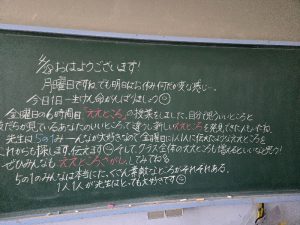 おはようございます!
月曜日ですね。でも明日はお休み何だか変な感じ…
今日1日一生けん命がんばりましょう
金曜日の6時間目「ええところ」の授業をしました。自分で思ういいところと
友だちが見ているあなたのいいところて違うし新しいええところを発見できた人もいたね。
先生も5の1みーんなが大好きなので金曜日に1人1人に伝えたようなええところを
これからも探します。伝えます そして、クラス全体のええところも増えるといいなと思う!
ぜひみんなもええところさがししてみてね
5の1のみんなは本当にたくさん素敵なところがそれぞれある。
1人1人が先生はとっても大好きです